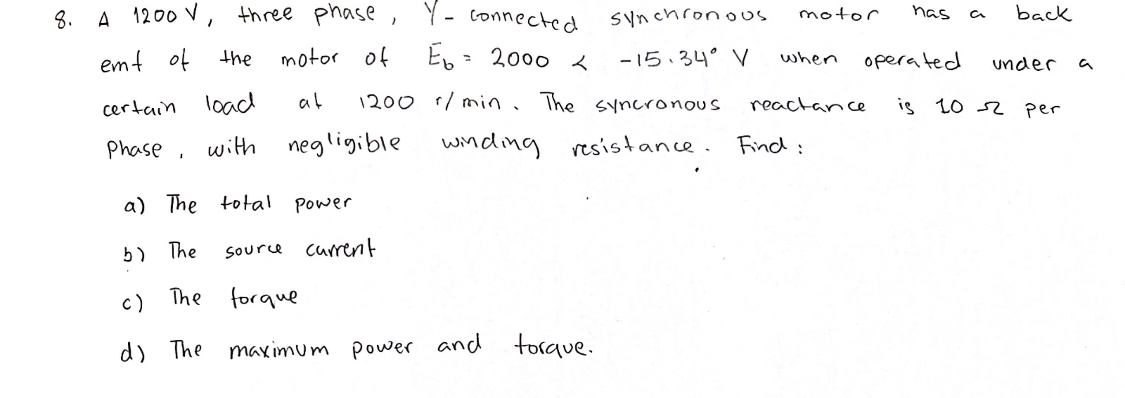 8. A 1200 V, three phase, Y-connected synchronous motor has a back
emf of the motor of E_b = 2000 < -15.34° V when operated under a
certain load at 1200 r/min. The syncronous reactance is 10 Ω per
phase, with negligible winding resistance. Find:
a) The total power
b) The source current
c) The torque
d) The maximum power and torque.